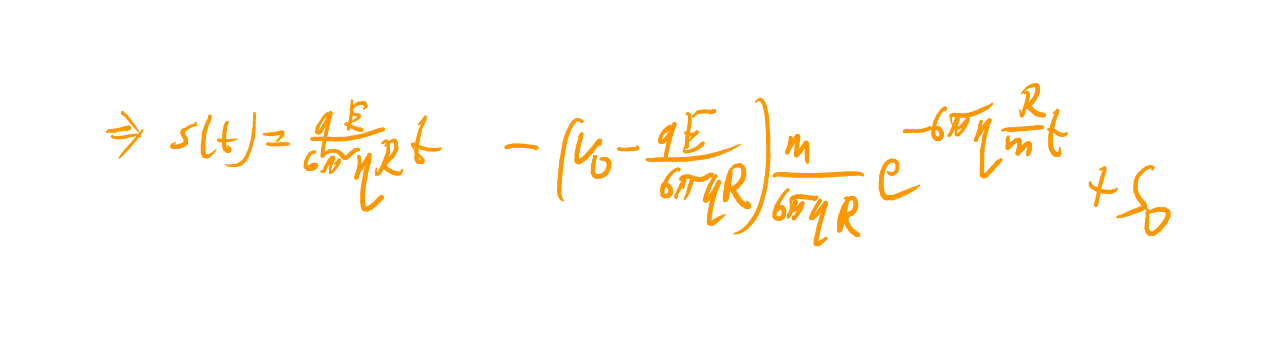 ⇒ s(t) = \frac{qE}{6πηR} t - (v_0 - \frac{qE}{6πηR}) \frac{m}{6πηR} e^{-6πη\frac{R}{m}t} + s_0